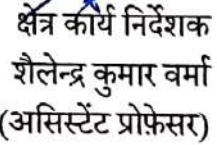 क्षेत्र कार्य निर्देशक
शैलेन्द्र कुमार वर्मा
(असिस्टेंट प्रोफ़ेसर)